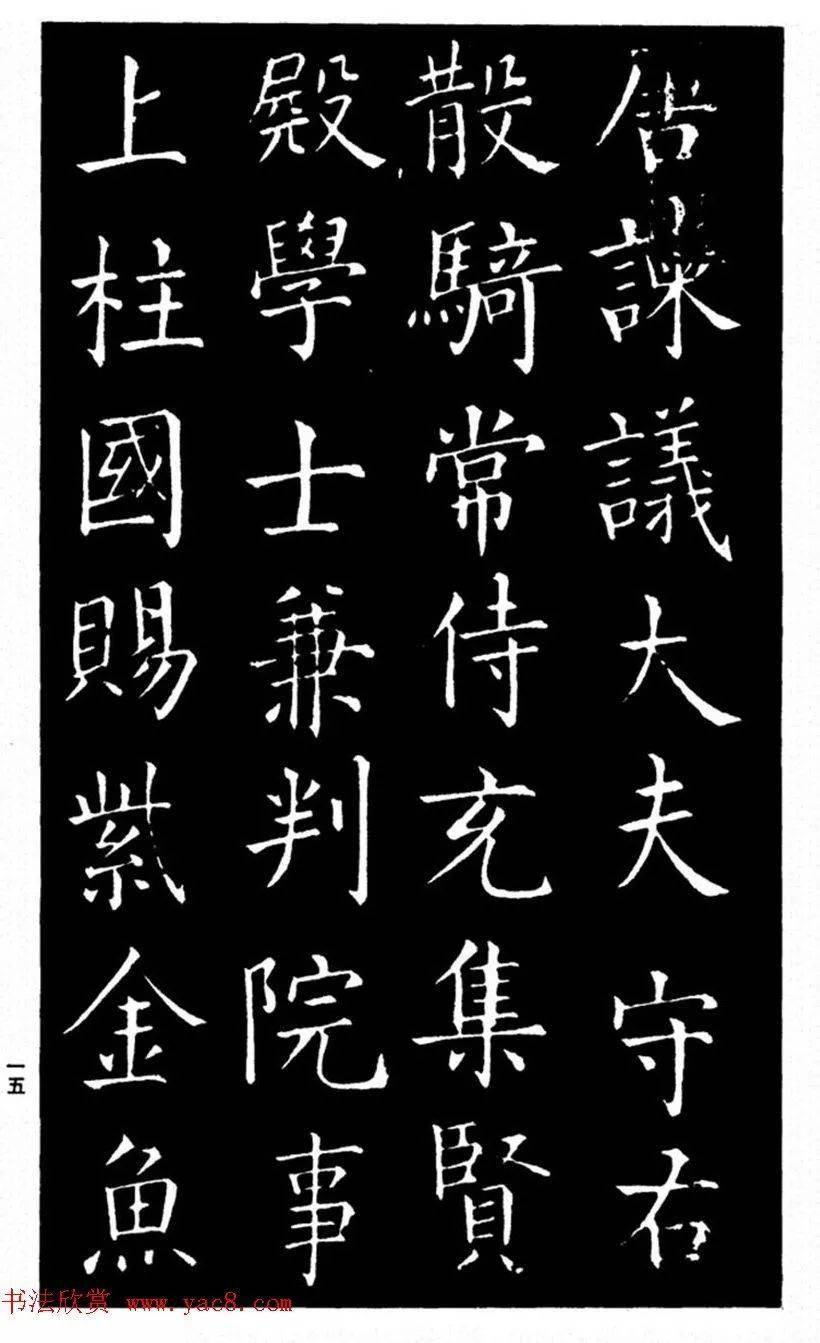 谷諫議大夫守右
散騎常侍充集賢
殿學士兼判院事
上柱國賜紫金魚
一五
书法欣赏 www.yac8.com